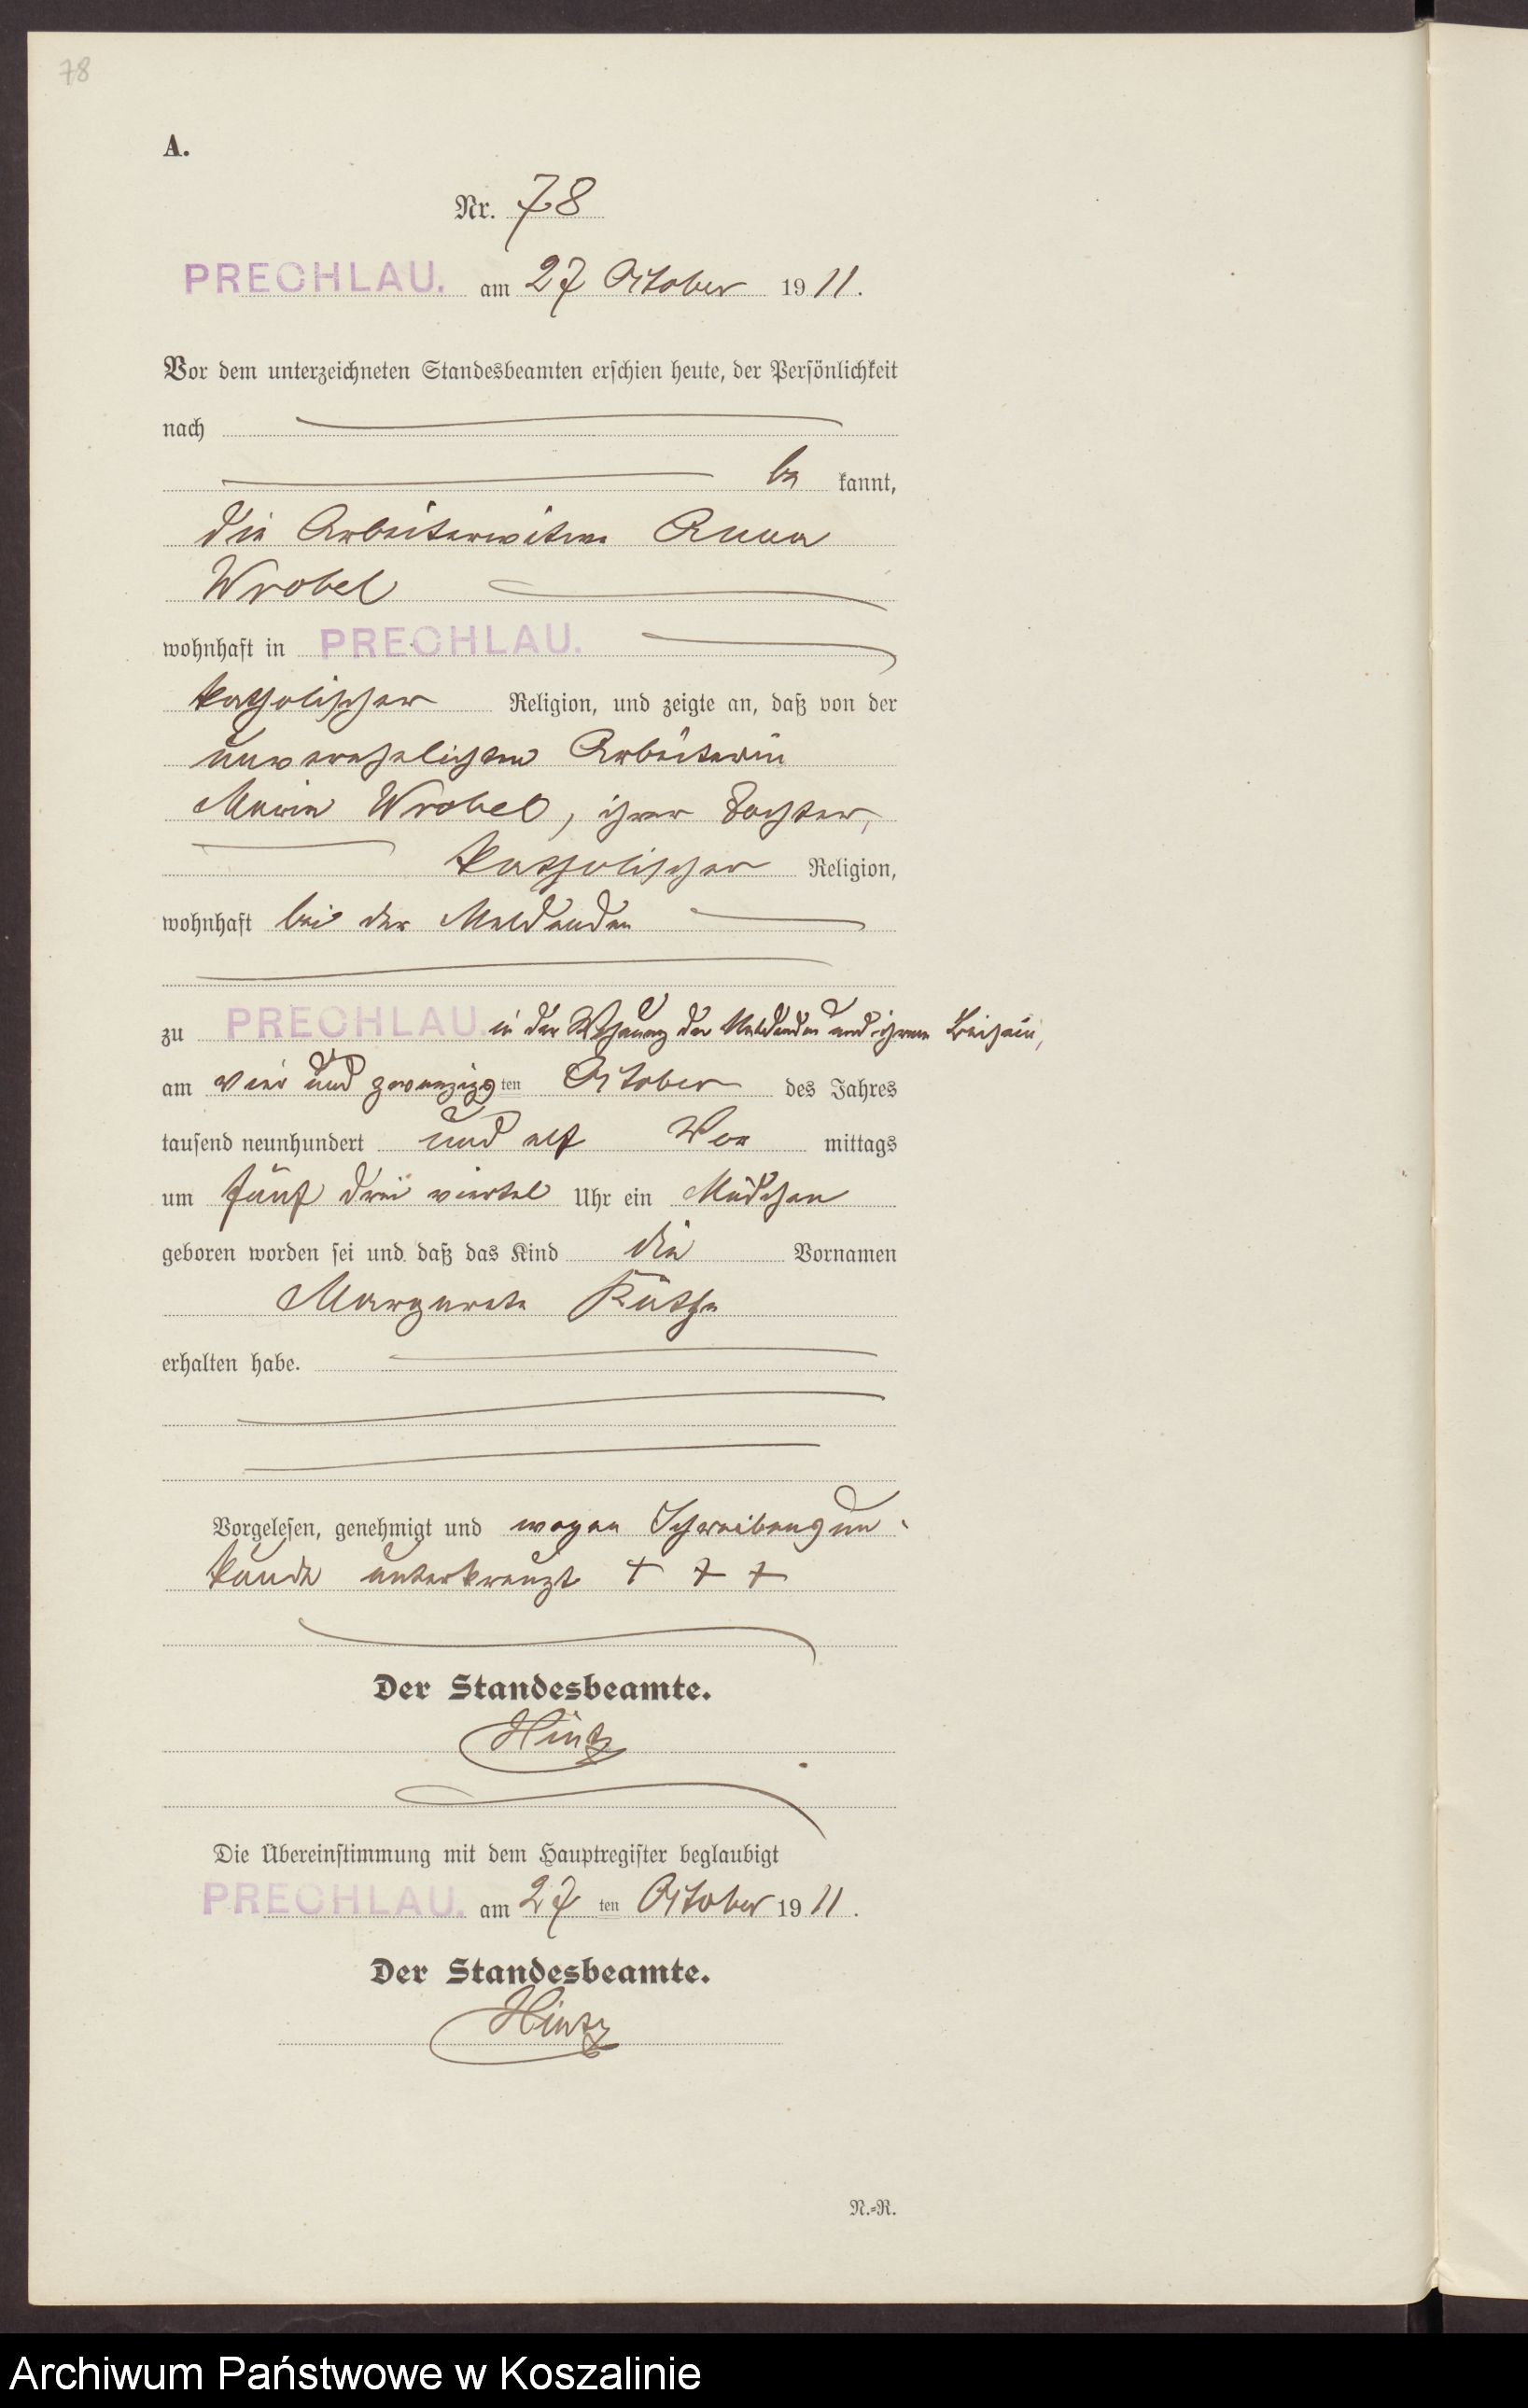 78
A.
Nr. 78
PRECHLAU. am 27 October 1911.
Vor dem unterzeichneten Standesbeamten erschien heute, der Persönlichkeit
nach
be kannt,
die Arbeiterwitwe Anna
Wrobel
wohnhaft in PRECHLAU.
katholischer Religion, und zeigte an, daß von der
unverehelichten Arbeiterin
Maria Wrobel, ihrer Tochter,
katholischer Religion,
wohnhaft bei der Meldenden
zu PRECHLAU. in der Wohnung der Meldenden und ihrem Beisein,
am vier und zwanzigsten October des Jahres
tausend neunhundert und elf Vor mittags
um fünf drei viertel Uhr ein Mädchen
geboren worden sei und daß das Kind die Vornamen
Margarete Käthe
erhalten habe.
Vorgelesen, genehmigt und wegen Schreibensun-
kunde unterkreuzt + + +
Der Standesbeamte.
Hintz
Die Übereinstimmung mit dem Hauptregister beglaubigt
PRECHLAU. am 27 ten October 1911.
Der Standesbeamte.
Hintz
N.-R.
Archiwum Państwowe w Koszalinie